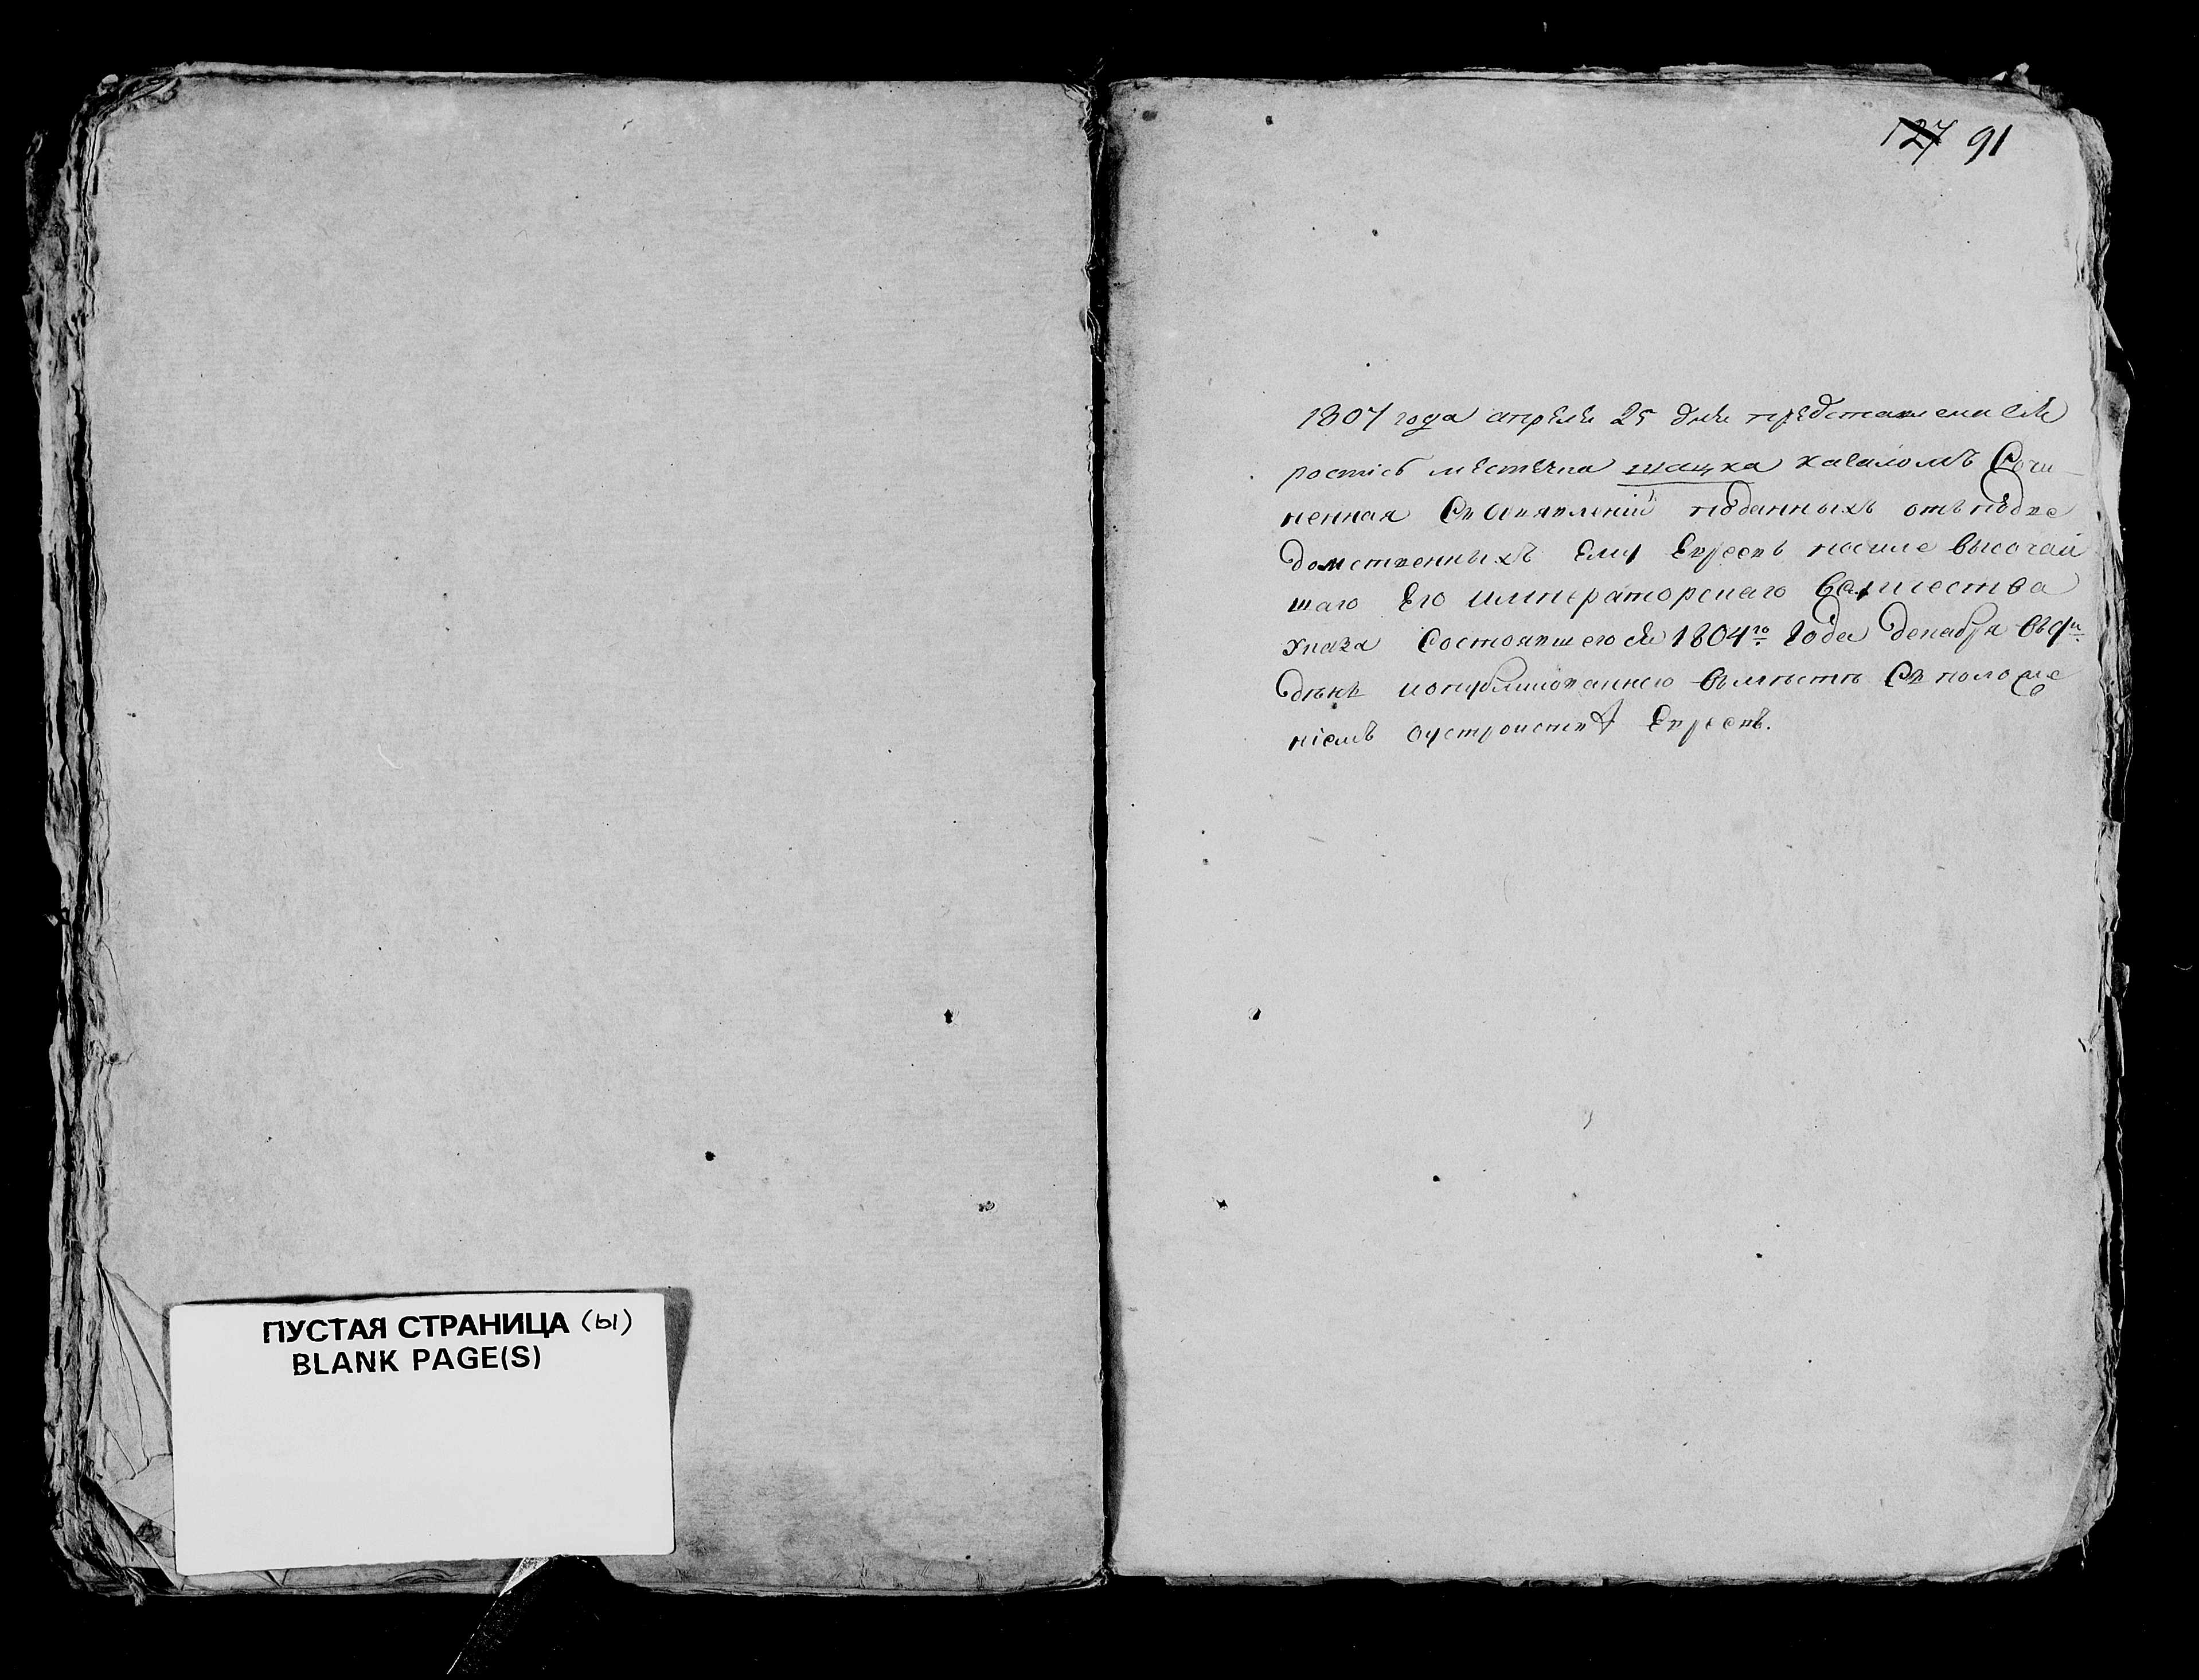 ПУСТАЯ СТРАНИЦА (ы)
BLANK PAGE(S)
127 91
1807 года апреля 25 дня представлена сия
роспісь местечка шацка кагаломъ Сочи-
ненная Съ объявленій поданныхъ отъ подве
домственныхъ Ему Евреевъ после высочай
шаго Его императорскаго величества
указа Состоявшегося 1804го года декабря въ 9й
день и опубликованнаго вместе Съ положе
ніемъ о устроистве Евреевъ.